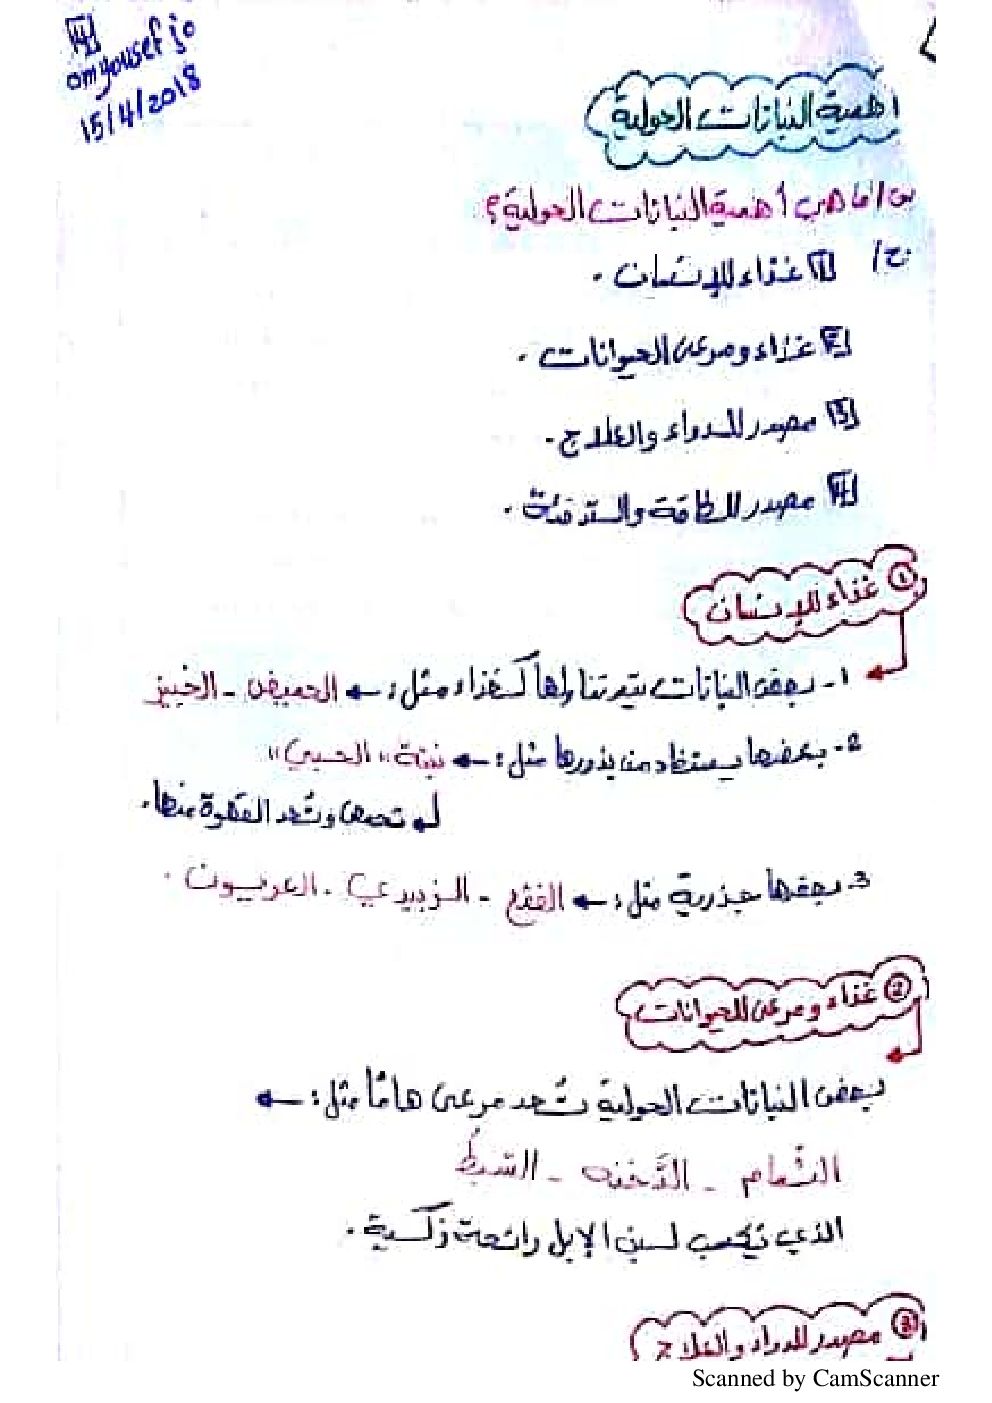 4
omyousef jo
15/4/2018
أهمية النباتات الحولية
س/ ما هي أهمية النباتات الحولية؟
ج/ 1 غذاء للإنسان .
2 غذاء ومرعى الحيوانات .
3 مصدر للدواء والعلاج .
4 مصدر للطاقة والتدفئة .
① غذاء للإنسان
1- بعض النباتات يتم تناولها كغذاء مثل: ← الحميض - الخبيز
2- بعضها يستفاد من بذورها مثل: ← نبتة "
تحمص وتُعد القهوة منها.
3- بعضها جذرية مثل: ← الفقع - الزبيدي - العرجون .
② غذاء ومرعى للحيوانات
بعض النباتات الحولية تُعد مرعى هامًا مثل: ←
الثُمام - الدَّخنه - السَبطُ
الذي يكسب لبن الإبل رائحة زكية .
③ مصدر للدواء والعلاج
Scanned by CamScanner